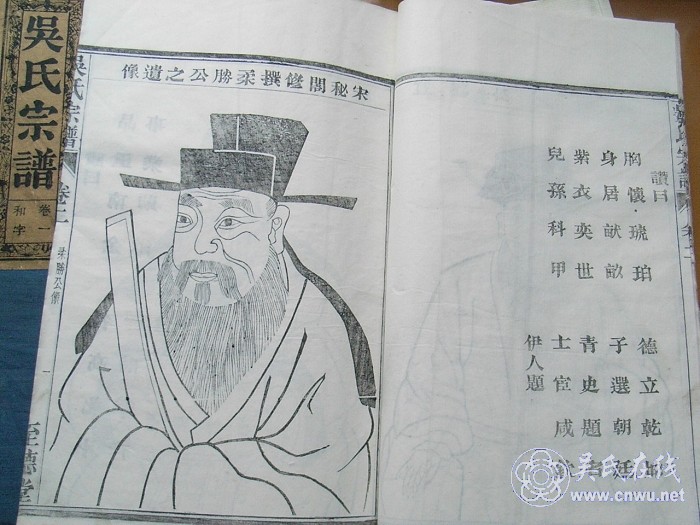 吳氏宗譜
卷一
和字
宋秘閣修撰柔勝公之遺像
吳氏宗譜
卷二
柔勝公像
一
至德堂
讚曰
胸懷琥珀 德立乾坤
身居畎畝 子選朝廷
紫衣奕世 青史題名
兒孫科甲 士宦咸
伊人題
吳氏宗譜
卷二
吳氏在线
www.cnwu.net